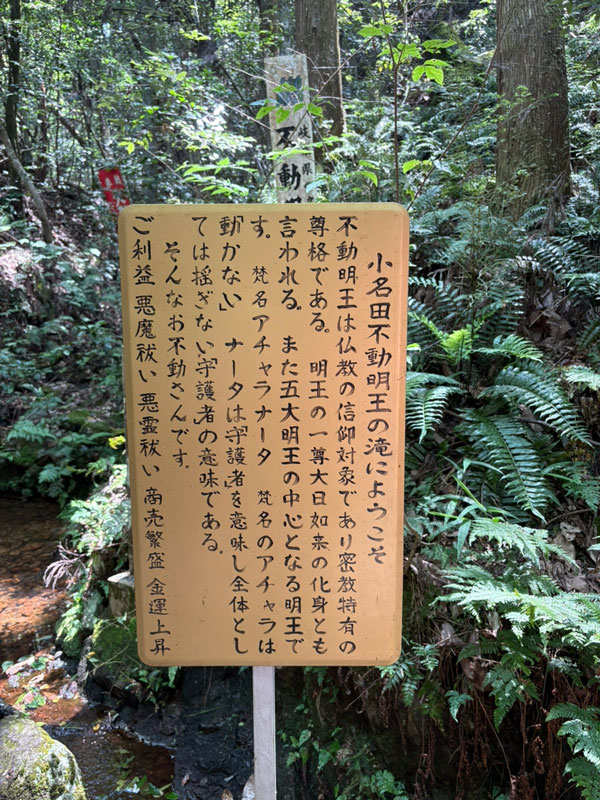 小名田不動明王の滝にようこそ
不動明王は仏教の信仰対象であり密教特有の
尊格である。明王の一尊大日如来の化身とも
言われる。また五大明王の中心となる明王で
す。 梵名アチャラナータ 梵名のアチャラは
「動かない」 ナータは「守護者」を意味し全体とし
ては揺ぎない「守護者」の意味である。
そんなお不動さんです。
ご利益 悪魔祓い 悪霊祓い 商売繁盛 金運上昇
不動